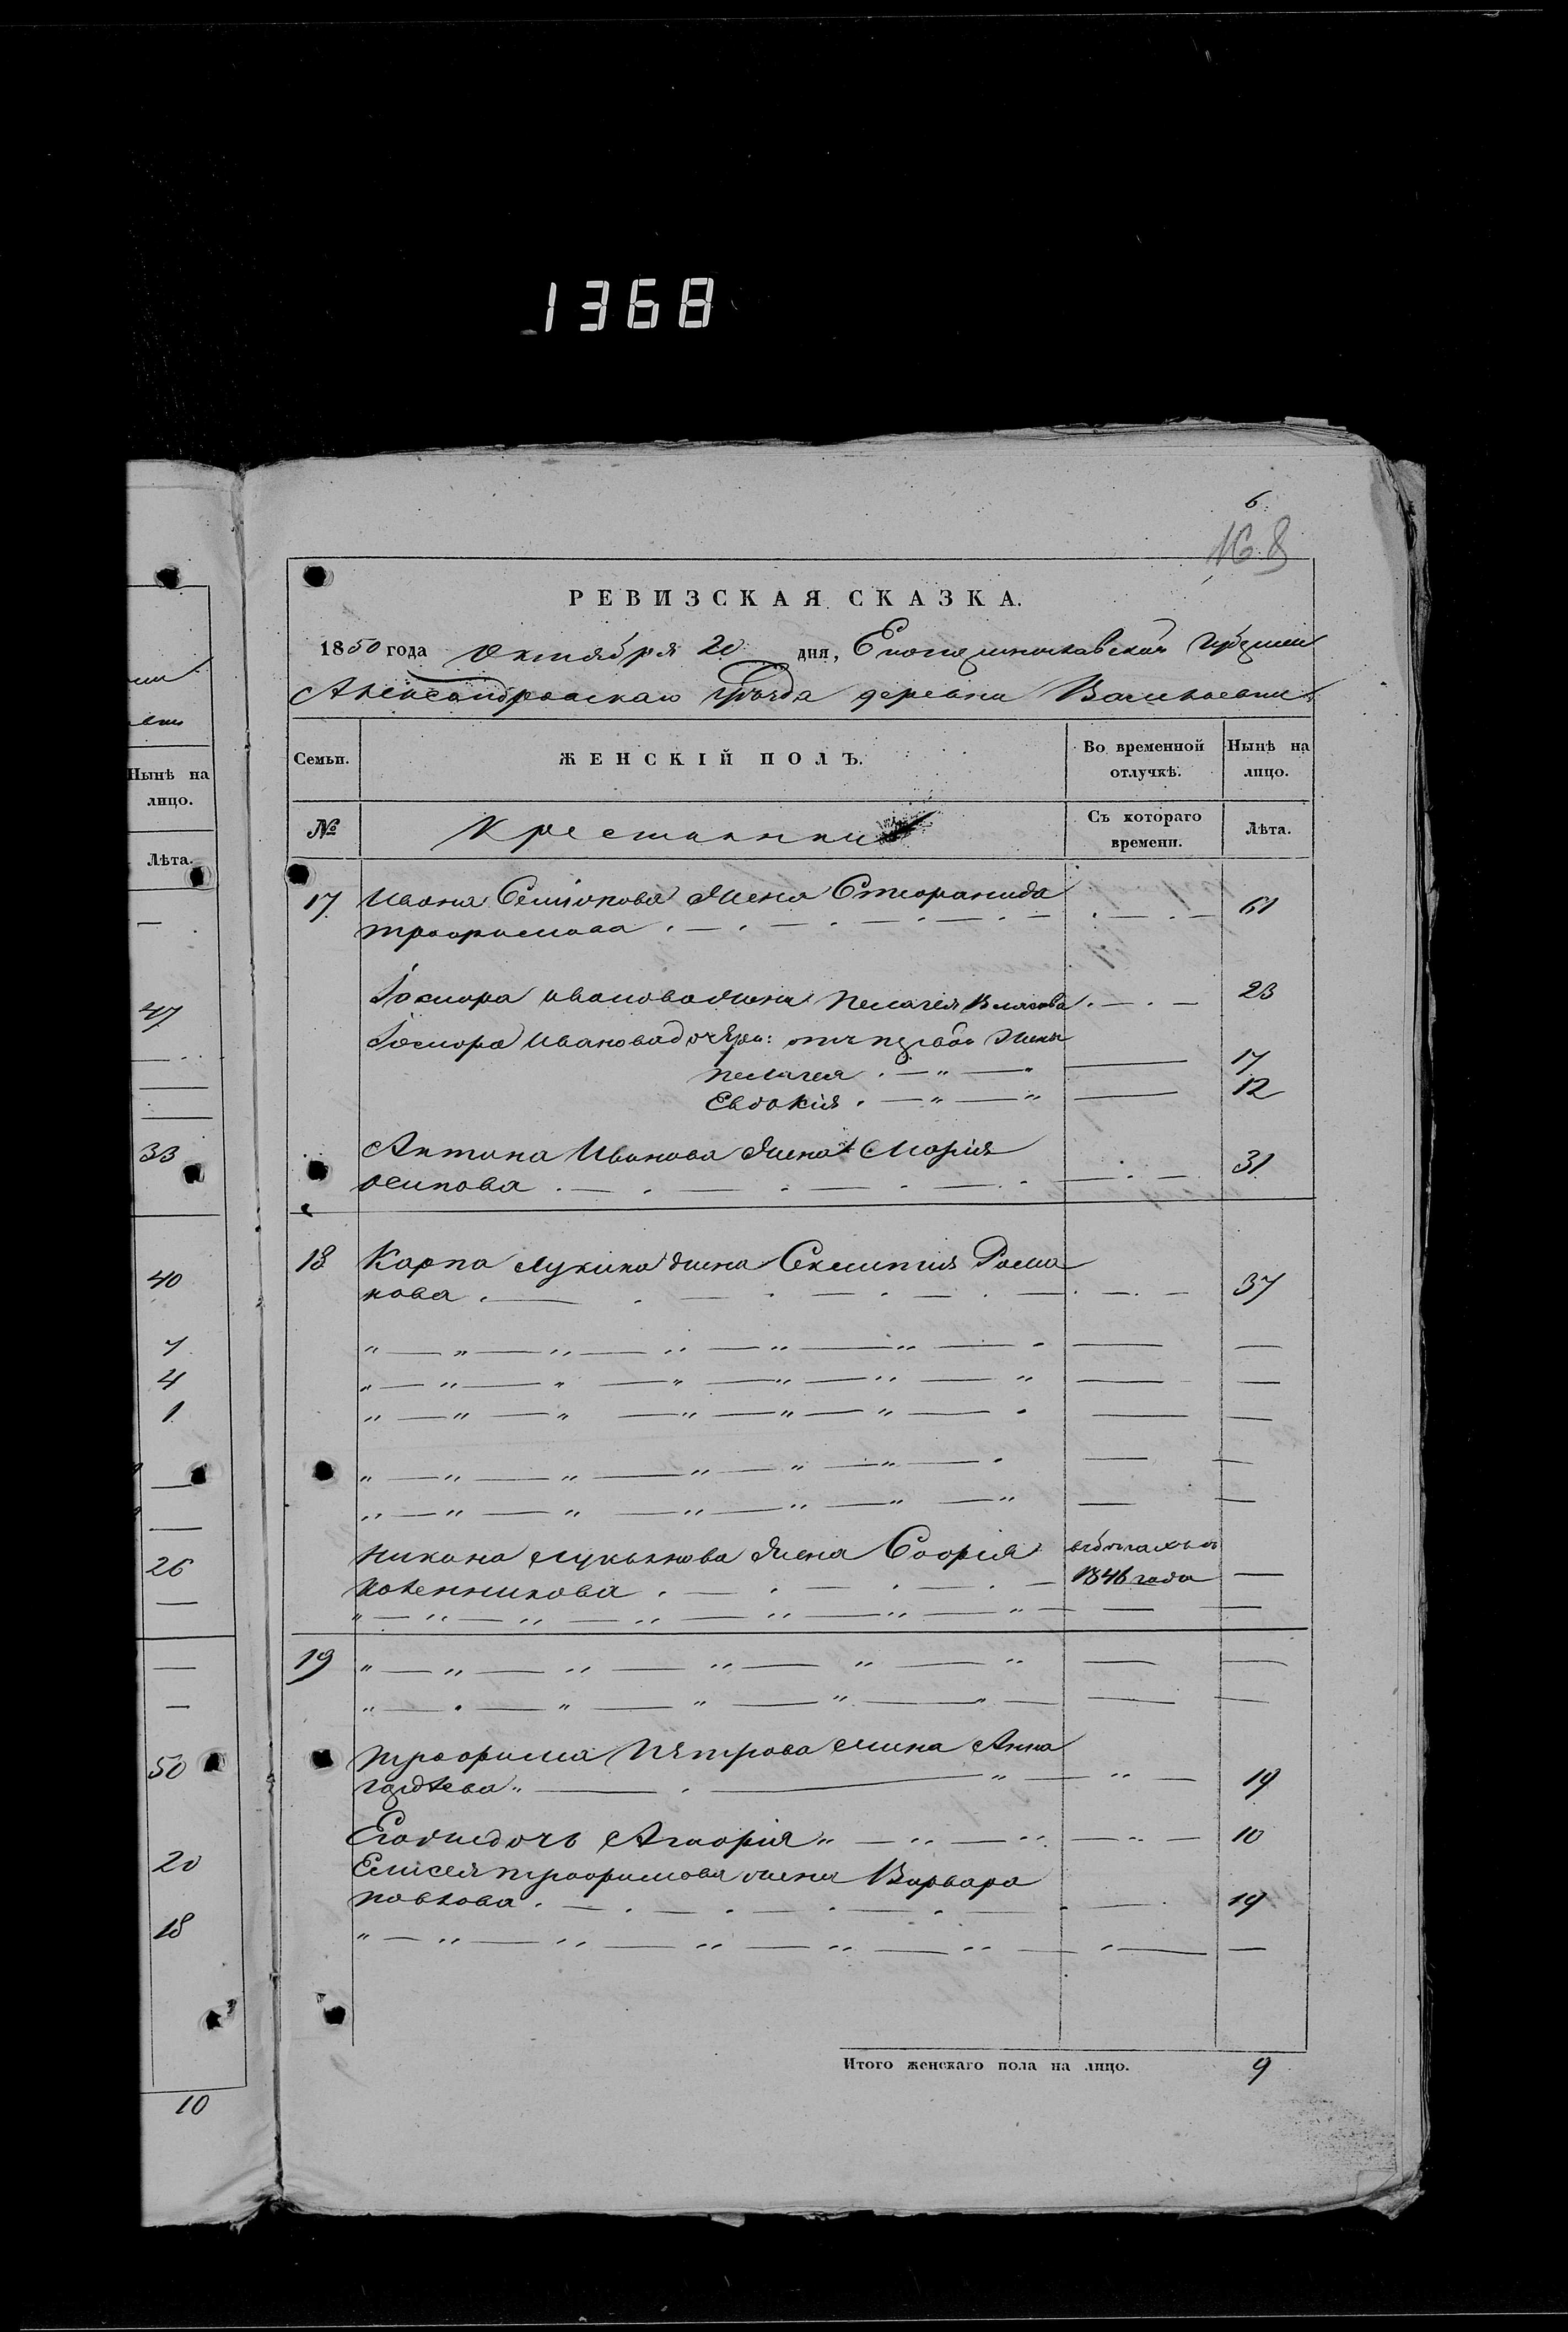 1368
6
168
РЕВИЗСКАЯ СКАЗКА.
1850 года Октября 20 дня, Екатеринославской Губернии
Александровскаго уѣзда деревни Васильевки
Семьи. ЖЕНСКІЙ ПОЛЪ. Во временной отлучкѣ. Нынѣ на лицо.
№ Крестьянки Съ котораго времени. Лѣта.
17 Ивана Семіонова жена Степанида 61
трофимова
Ивановажена Пелагея Власова 23
Иванова дочери: отъ первой жены
Пелагея 17
Евдокія 12
Антона Иванова жена Марія 31
Осипова
18 Карпа Лукина жена Рома
нова 37
Никона Лукьянова жена Софія въ бѣгахъ съ
1846 года
19
трофима Петрова жена Анна
19
Егождочь 10
Елисея трофимова жена Варвара
Павлова 19
Итого женскаго пола на лицо. 9
Нынѣ на
лицо.
Лѣта.
47
33
40
7
4
1
26
50
20
18
10